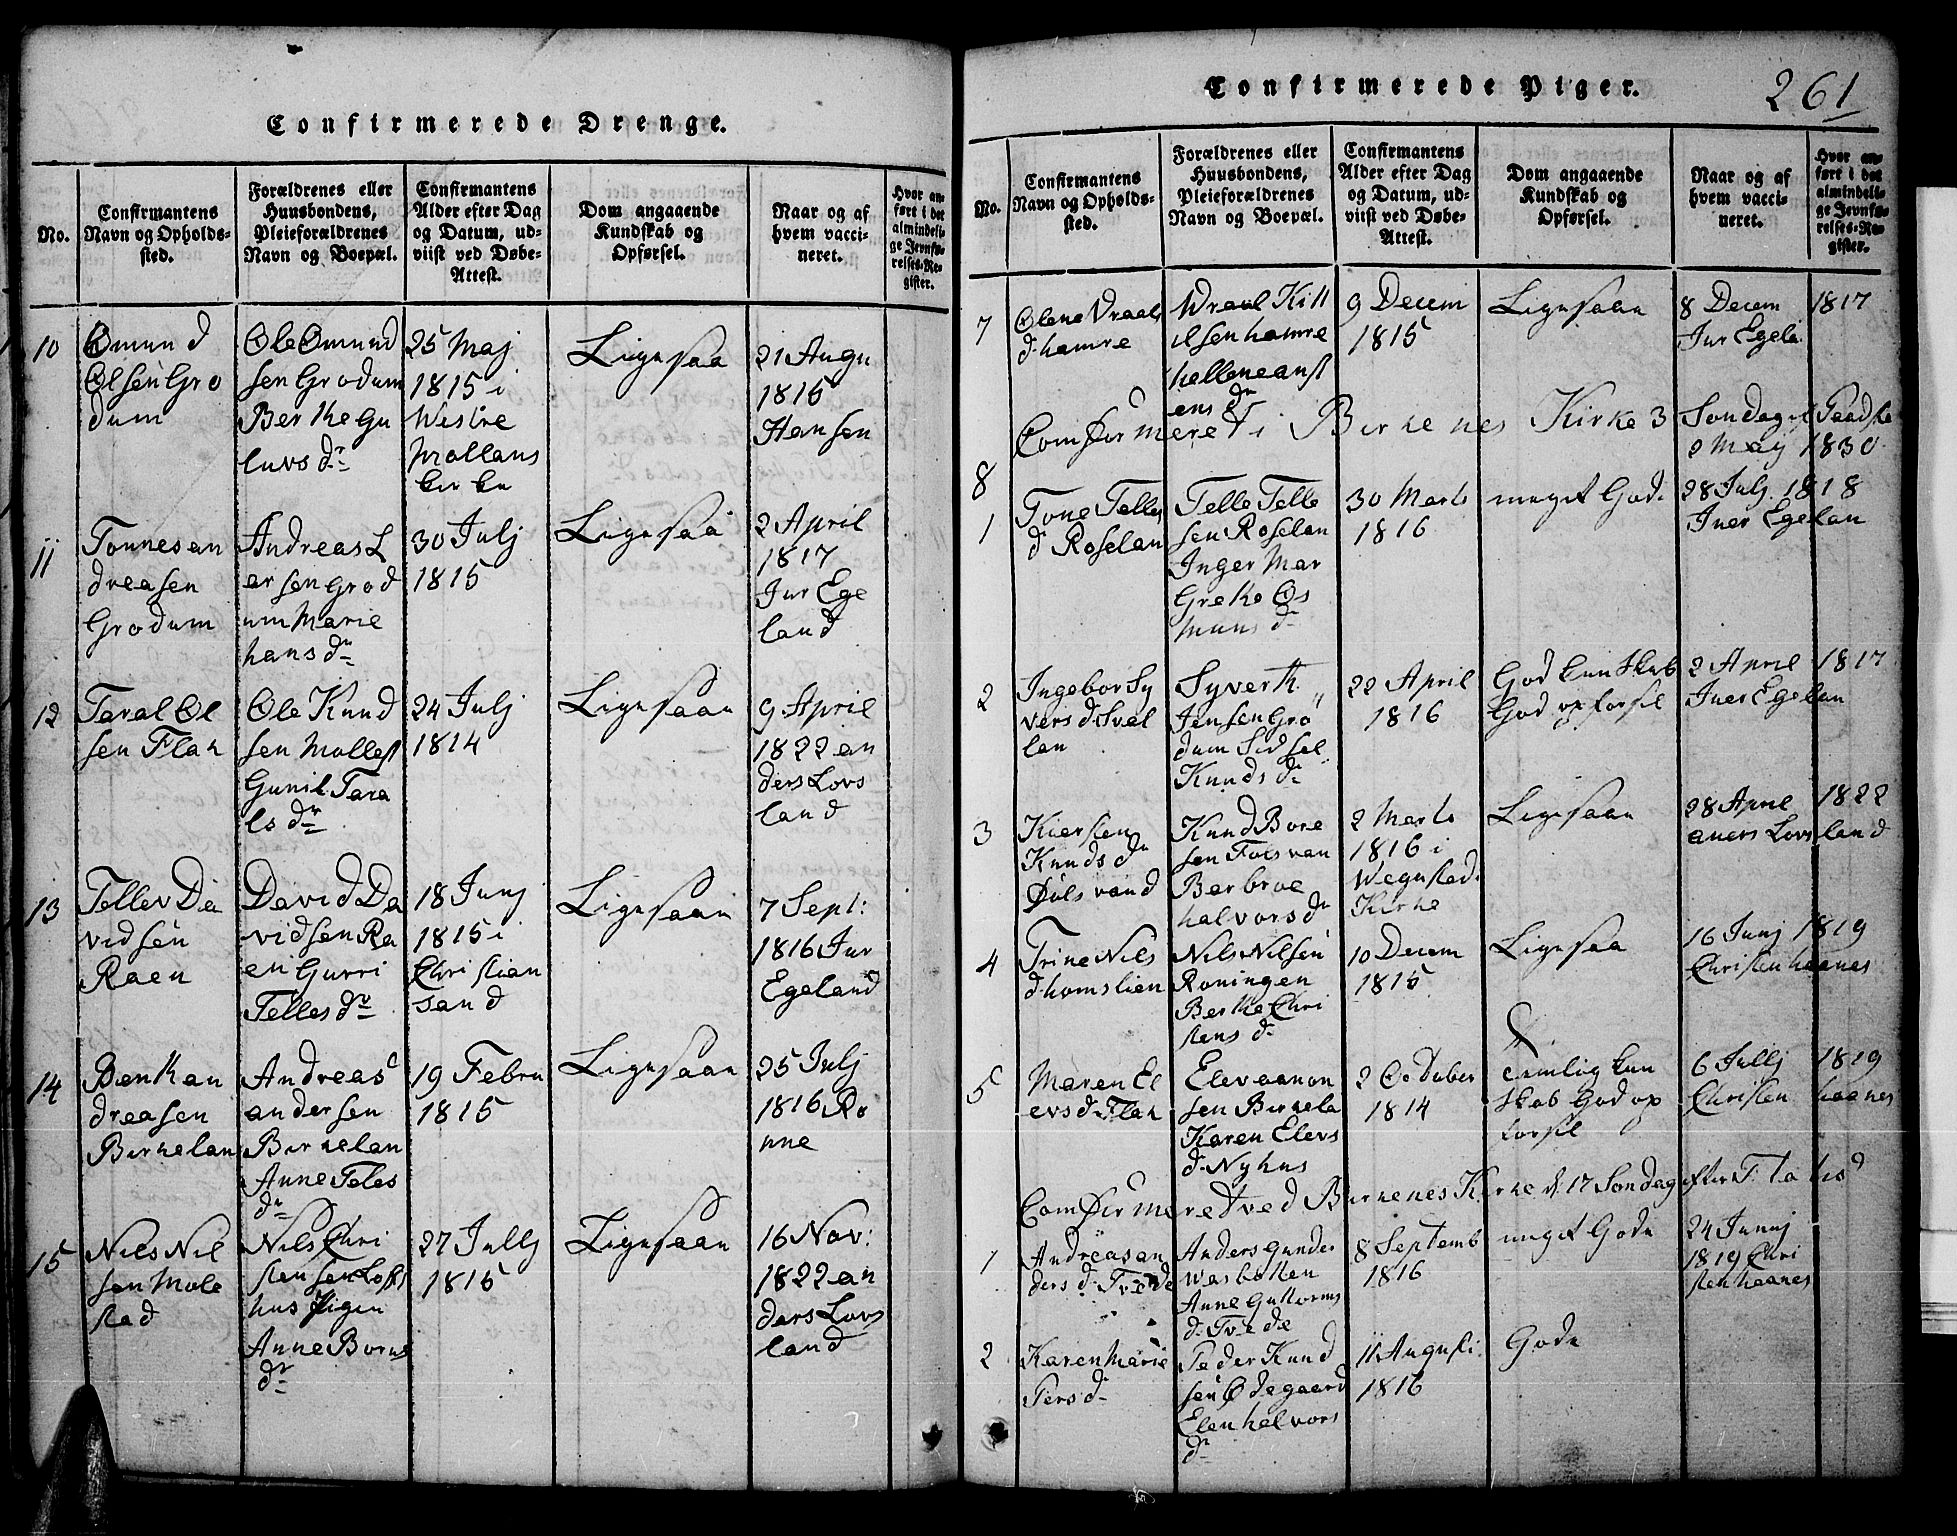 Confirmerede Drenge.
No.
Confirmantens
Navn og Opholds-
sted.
Forældrenes eller
Huusbondens,
Pleieforældrenes
Navn og Boepæl.
Confirmantens
Alder efter Dag
og Datum, ud-
viist ved Døbe-
Attest.
Dom angaaende
Kundskab og
Opførsel.
Naar og af
hvem vacci-
neret.
Hvor an-
ført i det
almindeli-
ge Jevnfø-
relses-Re-
gister.
10
Omund
Olsen Gro
dum
Ole Omund
sen Grodum
Berthe Gu
luvs dr
25 Maj
1815 i
Westre
Mollans
kirke
Ligesaa
21 Augu
1816
Hansen
11
Tonnes an
dreasen
Grodum
Andreas L
arsen Grod
um Marie
hans dr
30 Julj
1815
Ligesaa
2 April
1817
Jur Ege
land
12
Taral Ol
sen Flak
Ole Knud
sen Mollest
Gunil Tara
ls dr
24 Julj
1814
Ligesaa
9 April
1822 an
ders Lovs
land
13
Tellev Da
vidsen
Raen
David Da
vidsen Ra
en Gurri
Telles dr
18 Junj
1815 i
Christian
sand
Ligesaa
7 Sept:
1816 Jur
Egeland
14
Bent an
dreasen
Birkelan
Andreas
andersen
Birkelan
Anne Teles
dr
19 Febru
1815
Ligesaa
25 Julj
1816 Ro
nne
15
Nils Nil
sen Mole
stad
Nils Chri
stensen Lofst
hus Pigen
Anne Borns
dr
27 Jullj
1815
Ligesaa
16 Nov:
1822 an
ders Lovs
land
Confirmerede Piger.
261
No.
Confirmantens
Navn og Opholds-
sted.
Forældrenes eller
Huusbondens,
Pleieforældrenes
Navn og Boepæl.
Confirmantens
Alder efter Dag
og Datum, ud-
viist ved Døbe-
Attest.
Dom angaaende
Kundskab og
Opførsel.
Naar og af
hvem vacci-
neret.
Hvor an-
ført i det
almindeli-
ge Jevnfø-
relses-Re-
gister.
7
Olene Vraals
d hamre
Wraal Kitt
ilsen hamre
hellene anst
ens dr
9 Decem
1815
Ligesaa
8 Decem 1817
Jur Egela
Comfirmeret i Birkenes Kirke 3 Sondag
May 1830
8
1
Tone Telles
d Roselan
Telle Telle
sen Roselan
Inger Mar
Grethe Os
muns d
30 Marts
1816
meget God.
28 Julj 1818
Iver Egelan
2
Ingebor Sy
vers d Svel
lan
Syvert
Jensen Gro
dum Sidsel
Knuds d
22 April
1816
God kunskab
God opforsel
2 April 1817
Iver Egelan
3
Kiersten
Knuds dr
Dolsvand
Knud Bore
sen
Berbroe
halvors dr
2 Marts
1816 i
Wegusted.
Kirke
Ligesaa
28 April 1822
aners Lovsland
4
Trine Nils
d homslien
Nils Nilsen
Roningen
Berthe Chri
stens d
10 Decem
1815
Ligesaa
16 Junj 1819
Christen haanes
5
Maren El
evs d Flak
Elev aanon
sen Birkela
Karen Elevs
d Nyhus
2 October
1814
Temlig kun
skab God op
forsel
6 Jullj 1819
Christen haanes
Comfirmeret ved Birkenes Kirke d. 17 Sondag efter
1
Andreas an
ders d Tvede
Anders Gunder
Wasbotten
Anne Guttorms
d Tvede
8 Septemb
1816
meget Gode
24 Junnj
1819 Chri
sten haanes
2
Karen Marie
Pers d
Peder Knud
sen Odegaard
Elen halvors
dr
11 August
1816
Gode